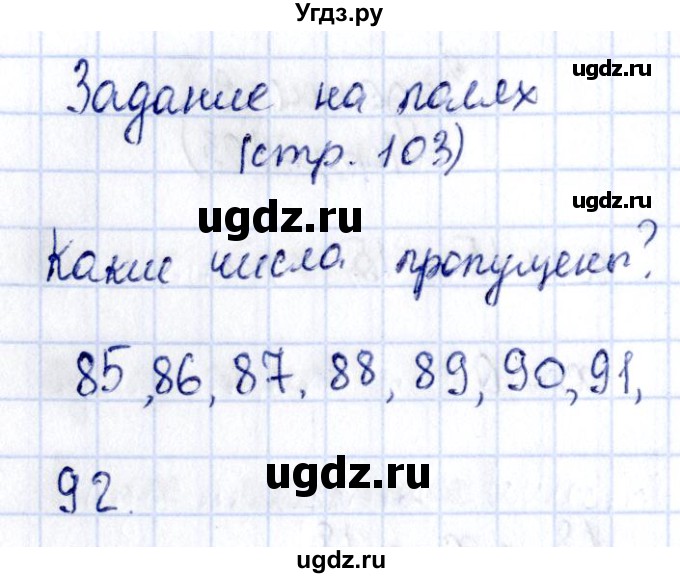 Угдз.ру
ugdz.ru
Задание на полях
(стр. 103)
ugdz.ru
ugdz.ru
Какие числа пропущены?
85, 86, 87, 88, 89, 90, 91,
ugdz.ru
92.
ugdz.ru
ugdz.ru